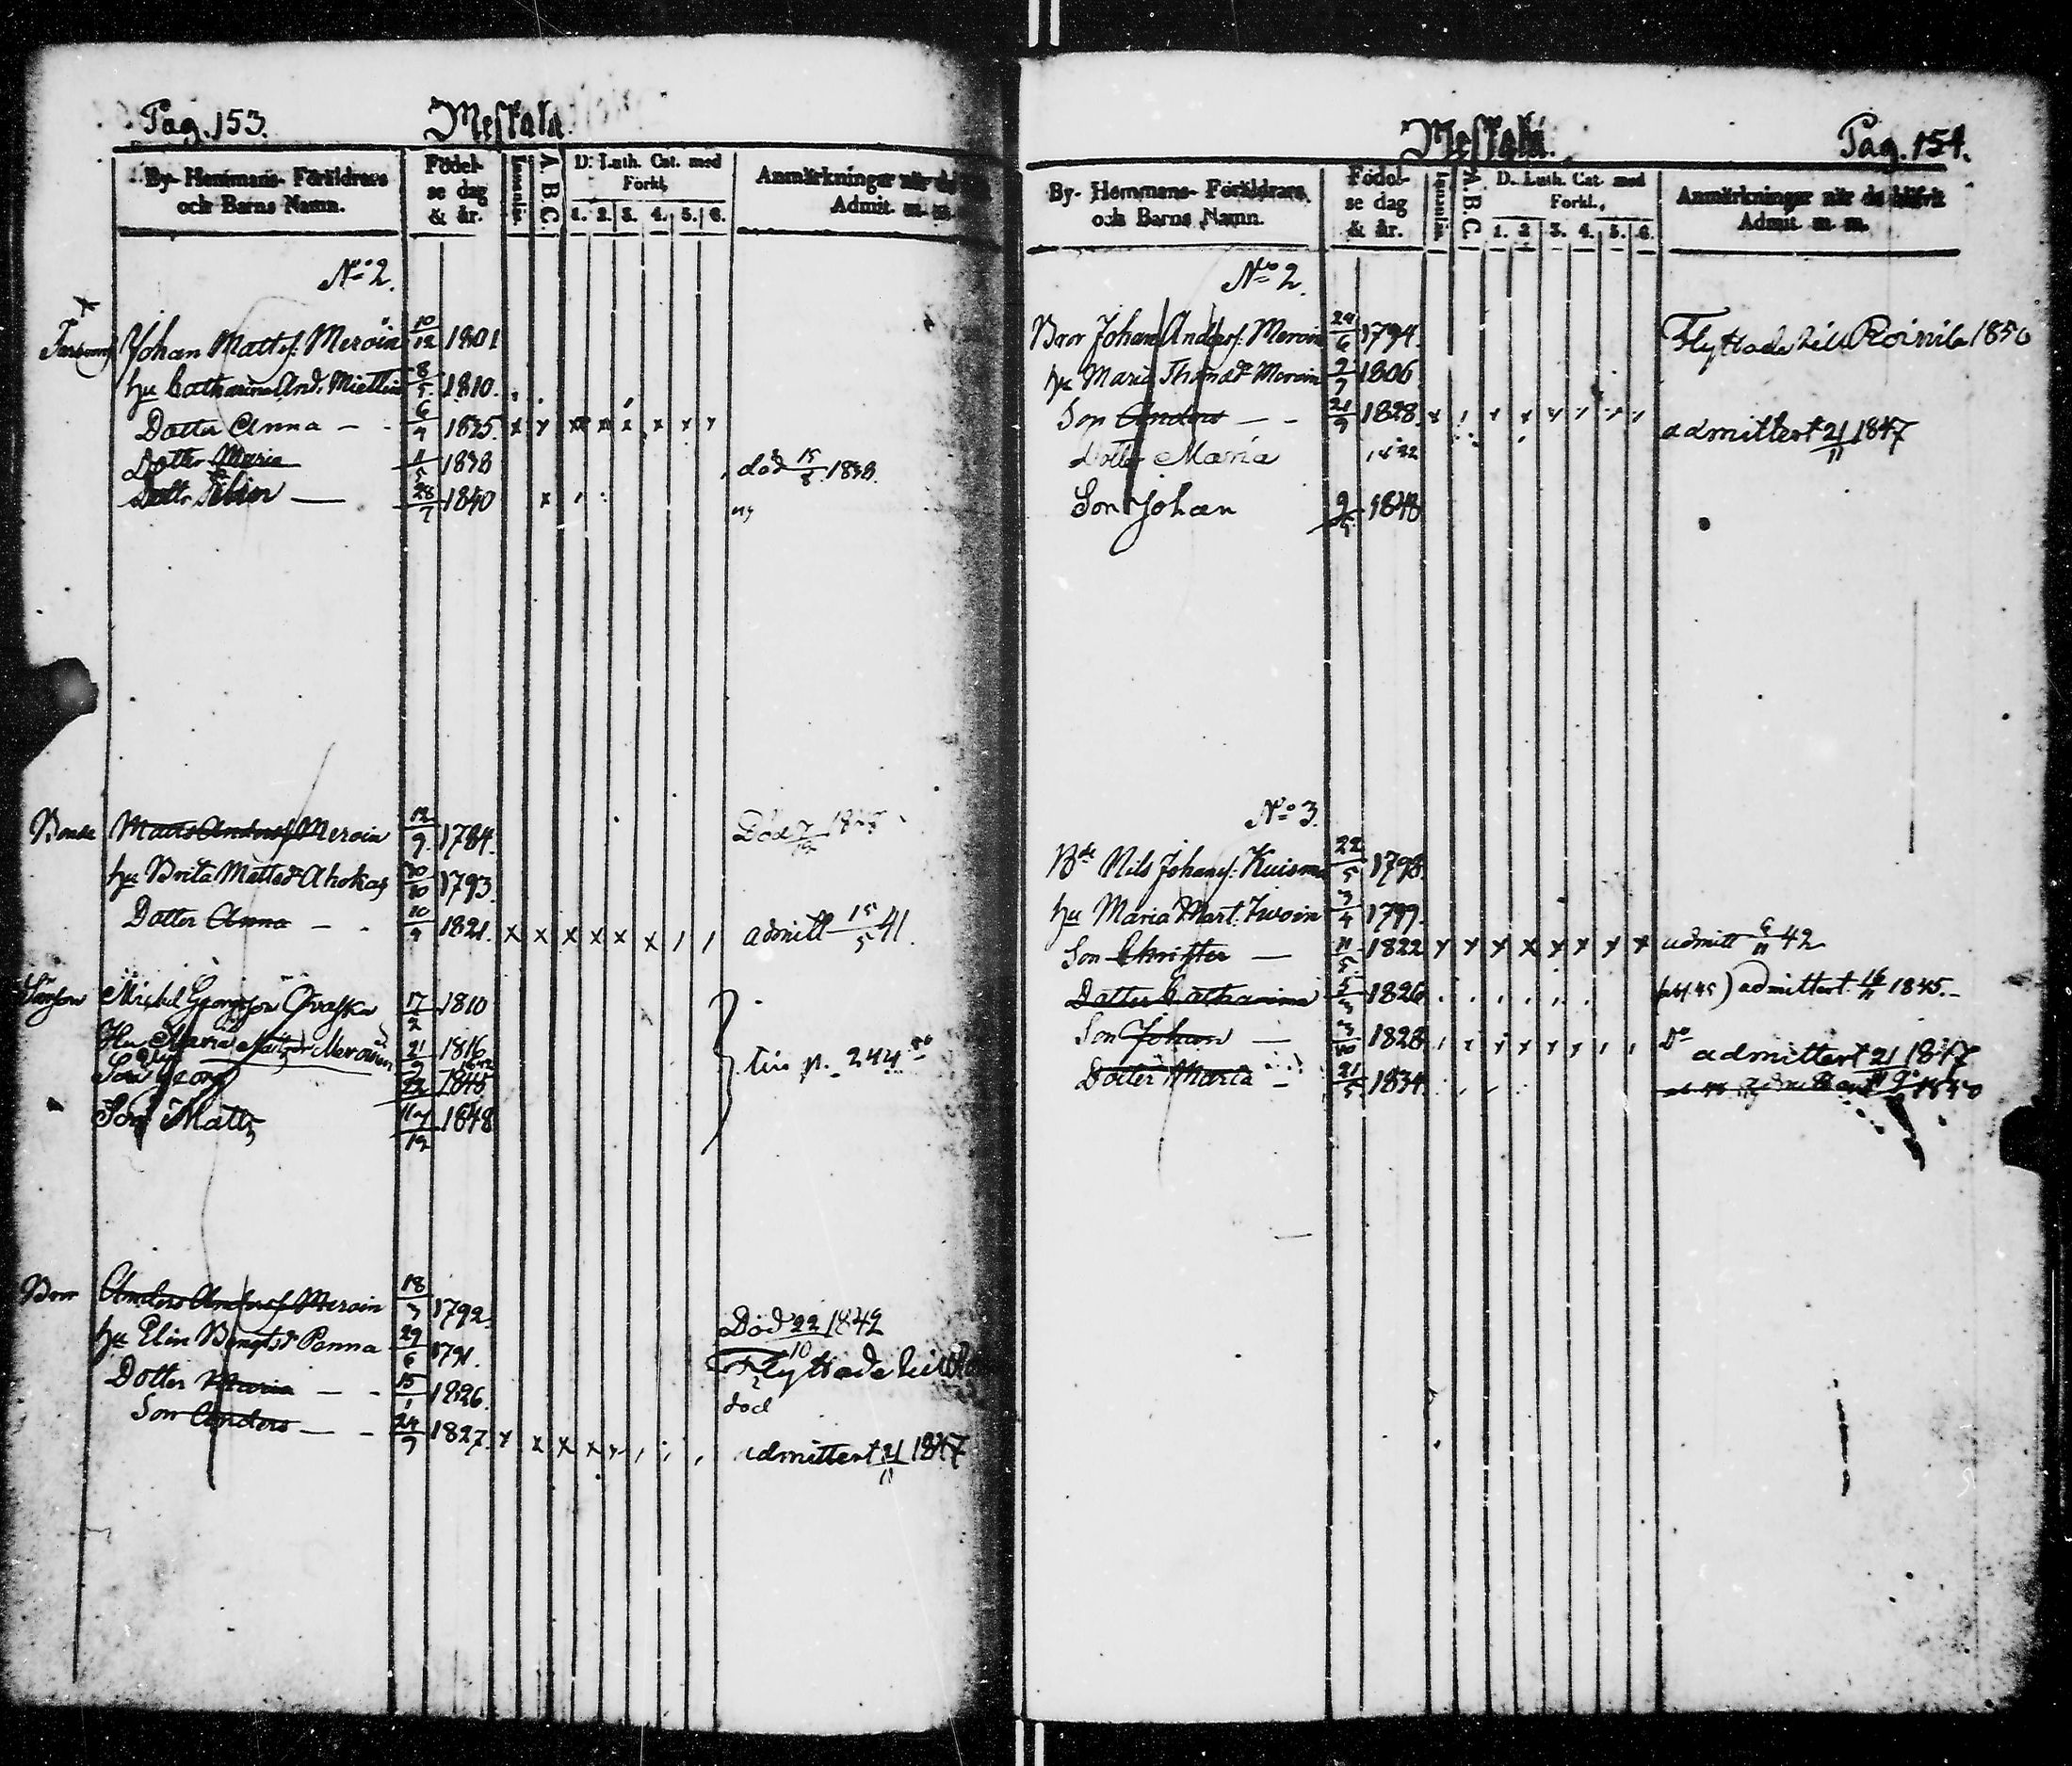 Pag. 153. Meskala.
By- Hemmans- Föräldrars och Barns Namn.
Födel-se dag & år.
Innanläs.
A. B. C.
D: Luth. Cat. med Förkl,
1. 2. 3. 4. 5. 6.
Anmärkningar när de
Admit. m. m.
No 2.
Johan Mattss. Meroin 10/12 1801
hu Catharina And. Miettin 8/5 1810.
Dotter Anna — - 6/9 1825. x x x x x x x x
Dotter Maria 11/5 1838 död 15/8 1838.
Dottr Elin — 28/7 1840 x
Bonde Matts Anderss Meroin 12/9 1784. Död 1845
hu Brita Mattsdr Ahokas 30/10 1793.
Dotter Anna — 10/9 1821. x x x x x x / / admitt 15/5 41.
Michel Georgsson Qvaska 17/2 1810
Hu Maria Matsdr Meroinen 21 1816
Son Georg 22 1845 p. 244
Son Matts 17/12 1848
Bror Anders Anderss Meroin 18/3 1792. Död 22/10 1842
hu Elin Bengtsdr Penna 29/6 1791. Flyttade till
Dotter Maria — - 15/1 1826. död
Son Anders — - 24/9 1827. x x x x admittert 21/11 1847
Meskala. Pag. 154.
By- Hemmans- Föräldrars och Barns Namn.
Födel-se dag & år.
Innanläs.
A. B. C.
D. Luth. Cat. med Forkl.,
1. 2 3. 4. 5. 6.
Anmärkningar när de blifvit
Admit. m. m.
No 2.
Bror Johan Anderss. Meroin 24/6 1794. Flyttade till Roinila 1850
hu Maria Thomasdr Meroin 2/7 1806
Son Anders — - 21/9 1828. admittert 21/11 1847
Dotter Maria 1832
Son Johan 9 1848
No 3.
Bde Nils Johanss. Kuisma 22/5 1798.
hu Maria Mart. Ivoin 3/4 1799.
Son Christer — 11/5 1822 x x x x x x x x admitt 6/11 42
Dotter Catharina 5/3 1826. admittert. 16/11 1845.-
Son Johan — 3/10 1828. Do admittert 21/11 1847
Dotter Maria - 21/5 1834. 1850